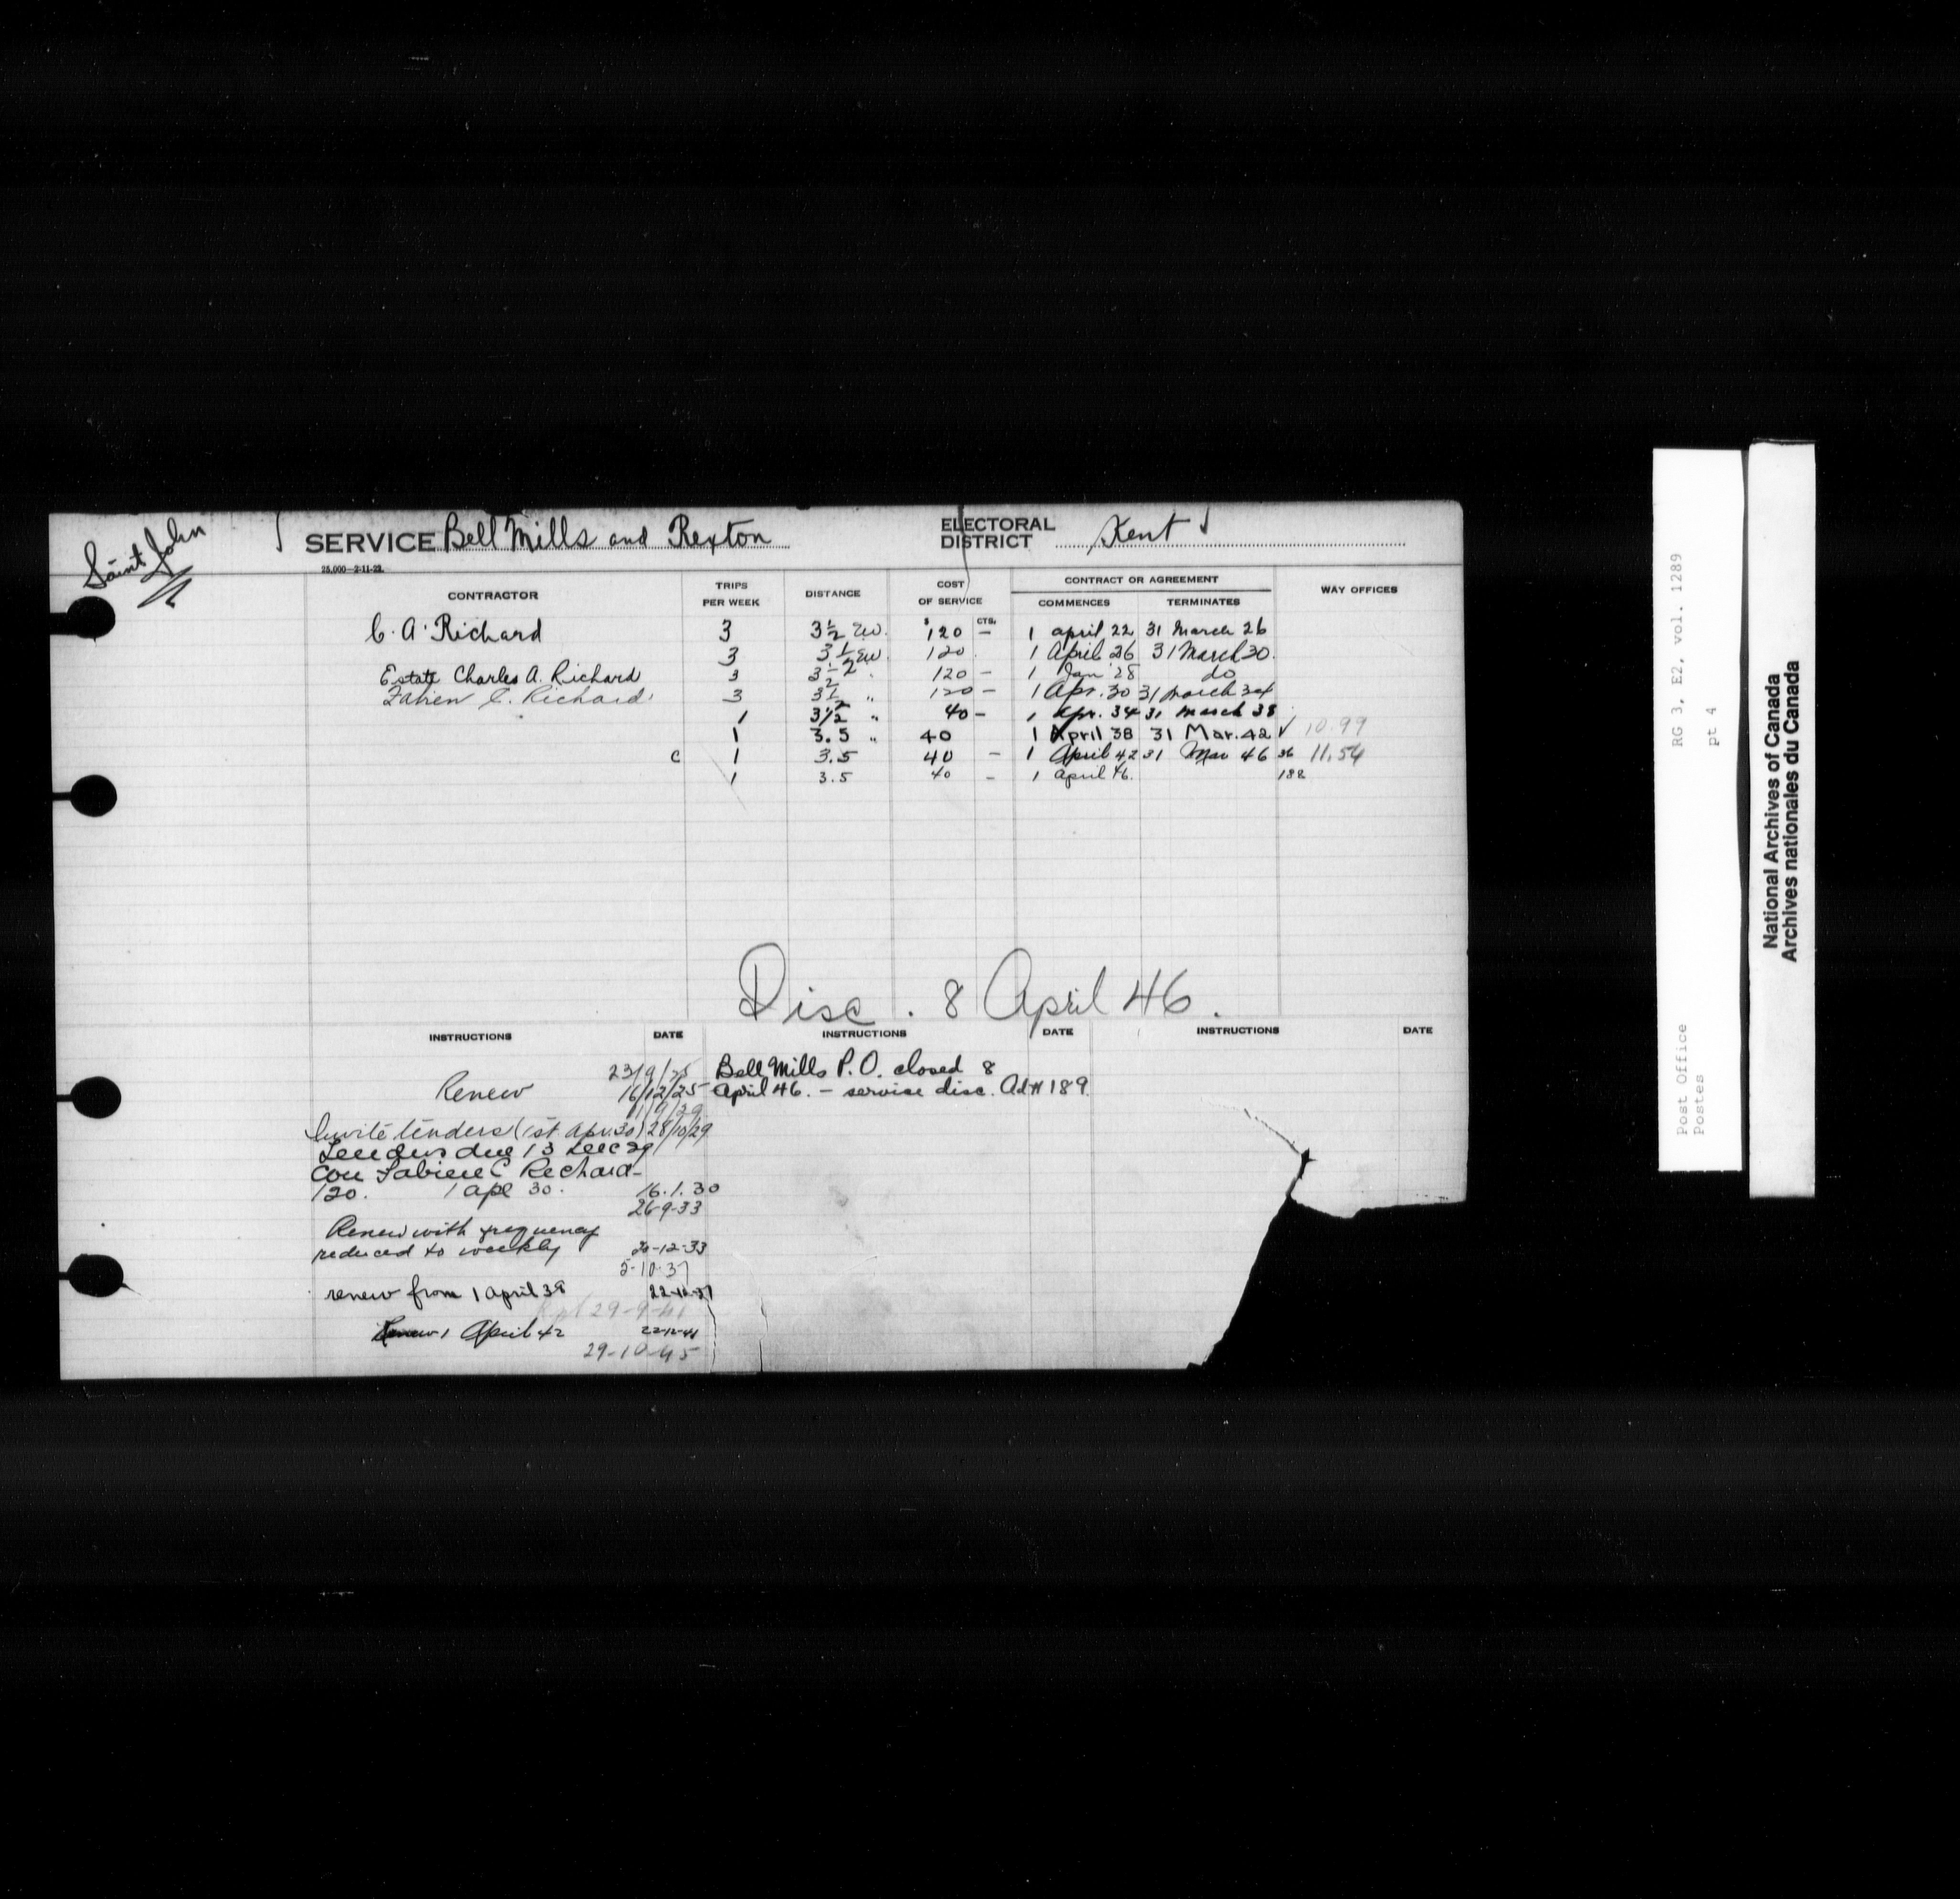 Saint John
SERVICE Bell Mills and Rexton
ELECTORAL DISTRICT Kent
25,000—2-11-22.
CONTRACTOR TRIPS PER WEEK DISTANCE COST OF SERVICE CONTRACT OR AGREEMENT WAY OFFICES
COMMENCES TERMINATES
$ CTS.
C. A. Richard 3 3½ 120 – 1 April 22 31 March 26
3 3½ 120 1 April 26 31 March 30.
Estate Charles A. Richard 3 3½ " 120 – 1 Jan 28 do
Fabien C. Richard 3 3½ " 120 – 1 Apr. 30 31 March 34
1 3½ " 40 – 1 Apr. 34 31 March 38
1 3.5 " 40 1 April 38 31 Mar. 42 ✓ 10.99
C 1 3.5 40 – 1 April 42 31 Mar 46 36 11.54
1 3.5 40 – 1 April 46. 188
Disc. 8 April 46.
INSTRUCTIONS DATE INSTRUCTIONS DATE INSTRUCTIONS DATE
23/9/25
Renew 16/12/25
11/9/29
Invite tenders (1st Apr. 30) 28/10/29
Tenders due 13 Dec 29
Con Fabien C Richard–
120. 1 Apl 30. 16.1.30
26-9-33
Renew with frequency
reduced to weekly 20-12-33
5-10-37
renew from 1 April 38 22-12-37
29-9-41
Renew 1 April 42 22-12-41
29-10-45
Bell Mills P.O. closed 8
April 46. – service disc. Ad # 189.
RG 3, E2, vol. 1289
pt 4
Post Office
Postes
National Archives of Canada
Archives nationales du Canada